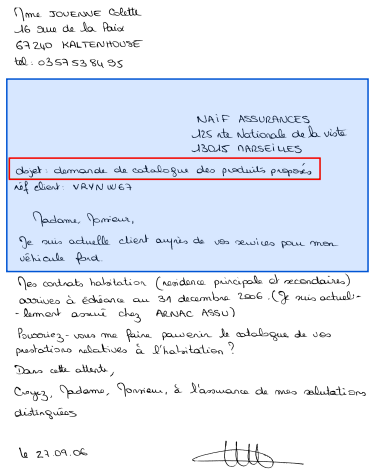 Mme JOUENNE Colette
16 rue de la Paix
67240 KALTENHOUSE
tel : 0357538495
NAIF ASSURANCES
125 rte Nationale de la viste
13015 MARSEILLES
objet : demande de catalogue des produits proposés
réf client : VRYNW67
Madame, Monsieur,
Je suis actuelle client auprès de vos services pour mon
véhicule ford.
Mes contrats habitation (residence principale et secondaires)
arrives à échéance au 31 decembre 2006. (Je suis actuel-
-lement assuré chez ARNAC ASSU)
Pouvoiriez-vous me faire parvenir le catalogue de vos
prestations relatives à l'habitation ?
Dans cette attente,
Croyez, Madame, Monsieur, à l'assurance de mes salutations
distinguées
le 27.09.06